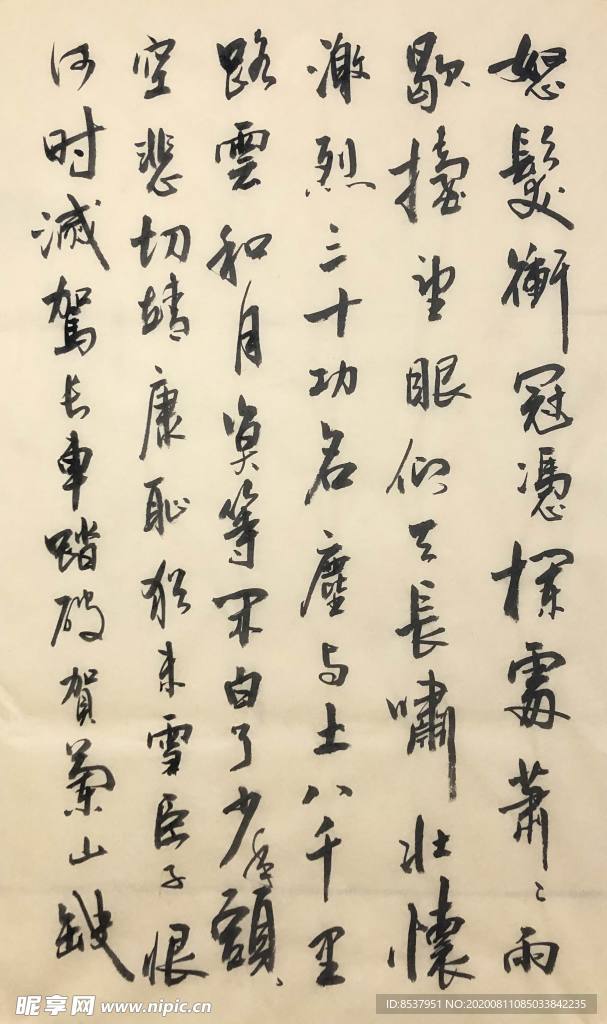 怒髮衝冠憑欄處蕭〻雨
歇擡望眼仰天長嘯壯懷
激烈三十功名塵与土八千里
路雲和月莫等閑白了少年
空悲切靖康恥猶未雪臣子恨
何时滅駕长車踏破賀蘭山缺
昵享网 www.nipic.cn
ID:8537951 NO:20200811085033842235